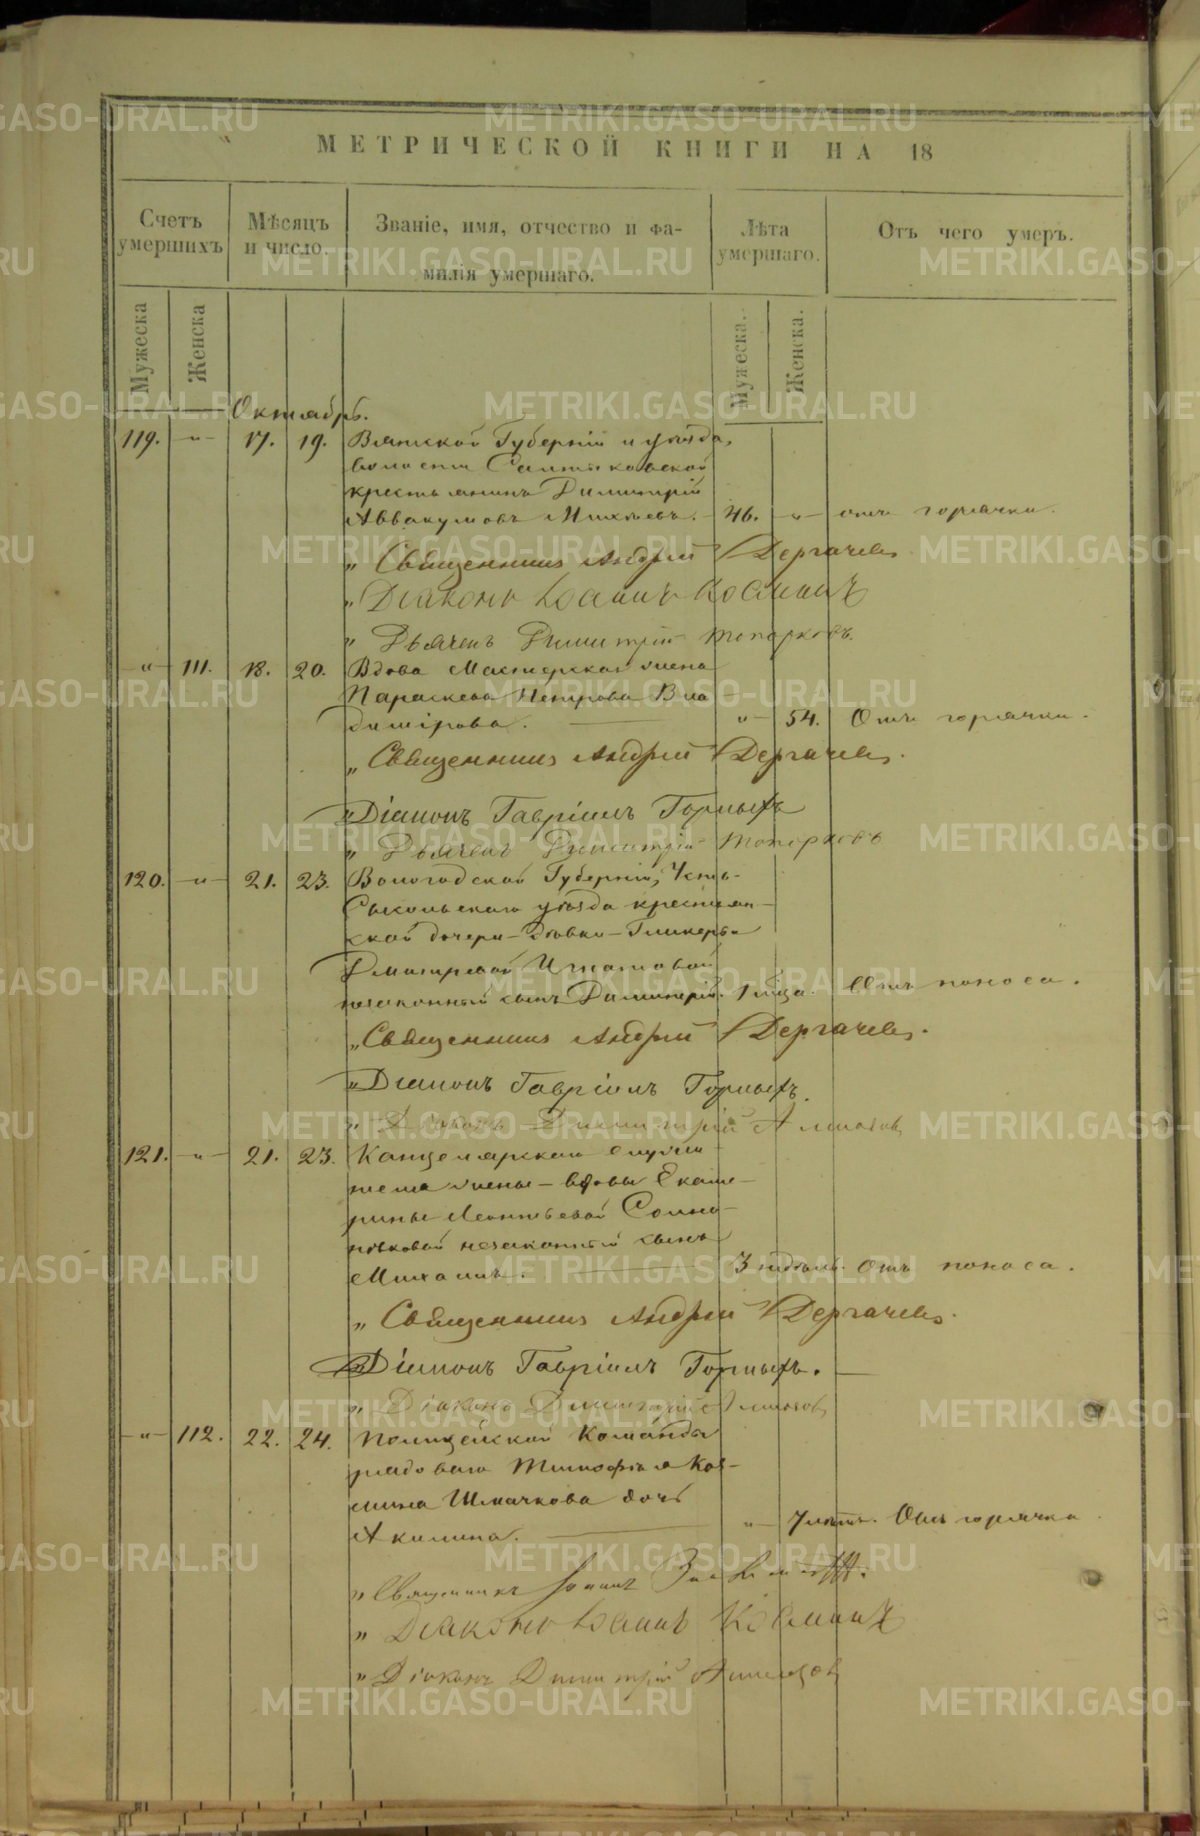 МЕТРИЧЕСКОЙ КНИГИ НА 18
Счетъ умершихъ
Мѣсяцъ и число.
Званіе, имя, отчество и фамилія умершаго.
Лѣта умершаго.
Отъ чего умеръ.
Мужеска
Женска
Мужеска.
Женска.
Октябрь.
119. „ 17. 19. Вятской Губерніи и уѣзда,
волости
крестьянинъ Димитрій
Аввакумовъ Михѣевъ. 46. „ отъ горячки.
„ Священникъ Андрей Дергачевъ
„ Діаконъ Іоаннъ Косминъ
„ Дьячекъ Димитрій Топорковъ.
„ 111. 18. 20. Вдова Мастерская жена
Параскева Петрова Вла-
димірова. „ 54. Отъ горячки.
„ Священникъ Андрей Дергачевъ.
„ Діаконъ Гавріилъ Горныхъ
„ Дьячекъ Димитрій Топорковъ
120. „ 21. 23. Вологодской Губерніи, Усть-
Сысольскаго уѣзда крестьян-
ской дочери - дѣвки - Гликеріи
Дмитріевой Игнатовой
незаконный сынъ Димитрій. 1 мѣся. Отъ поноса.
„ Священникъ Андрей Дергачевъ.
„ Діаконъ Гавріилъ Горныхъ.
„ Діаконъ Димитрій
121. „ 21. 23. Канцелярскаго служи-
теля жены - вдовы Екате-
рины Леонтьевой
незаконный сынъ
Михаилъ. 3 недѣль. Отъ поноса.
„ Священникъ Андрей Дергачевъ.
„ Діаконъ Гавріилъ Горныхъ.
„ Діаконъ Димитрій
„ 112. 22. 24. Полицейской Команды
рядоваго Тимофѣя Коз-
мина Шмачкова дочь
Акилина. „ 7 лѣтъ. Отъ горячки.
„ Священникъ Іоаннъ
„ Діаконъ Іоаннъ Косминъ
„ Діаконъ Димитрій
METRIKI.GASO-URAL.RU